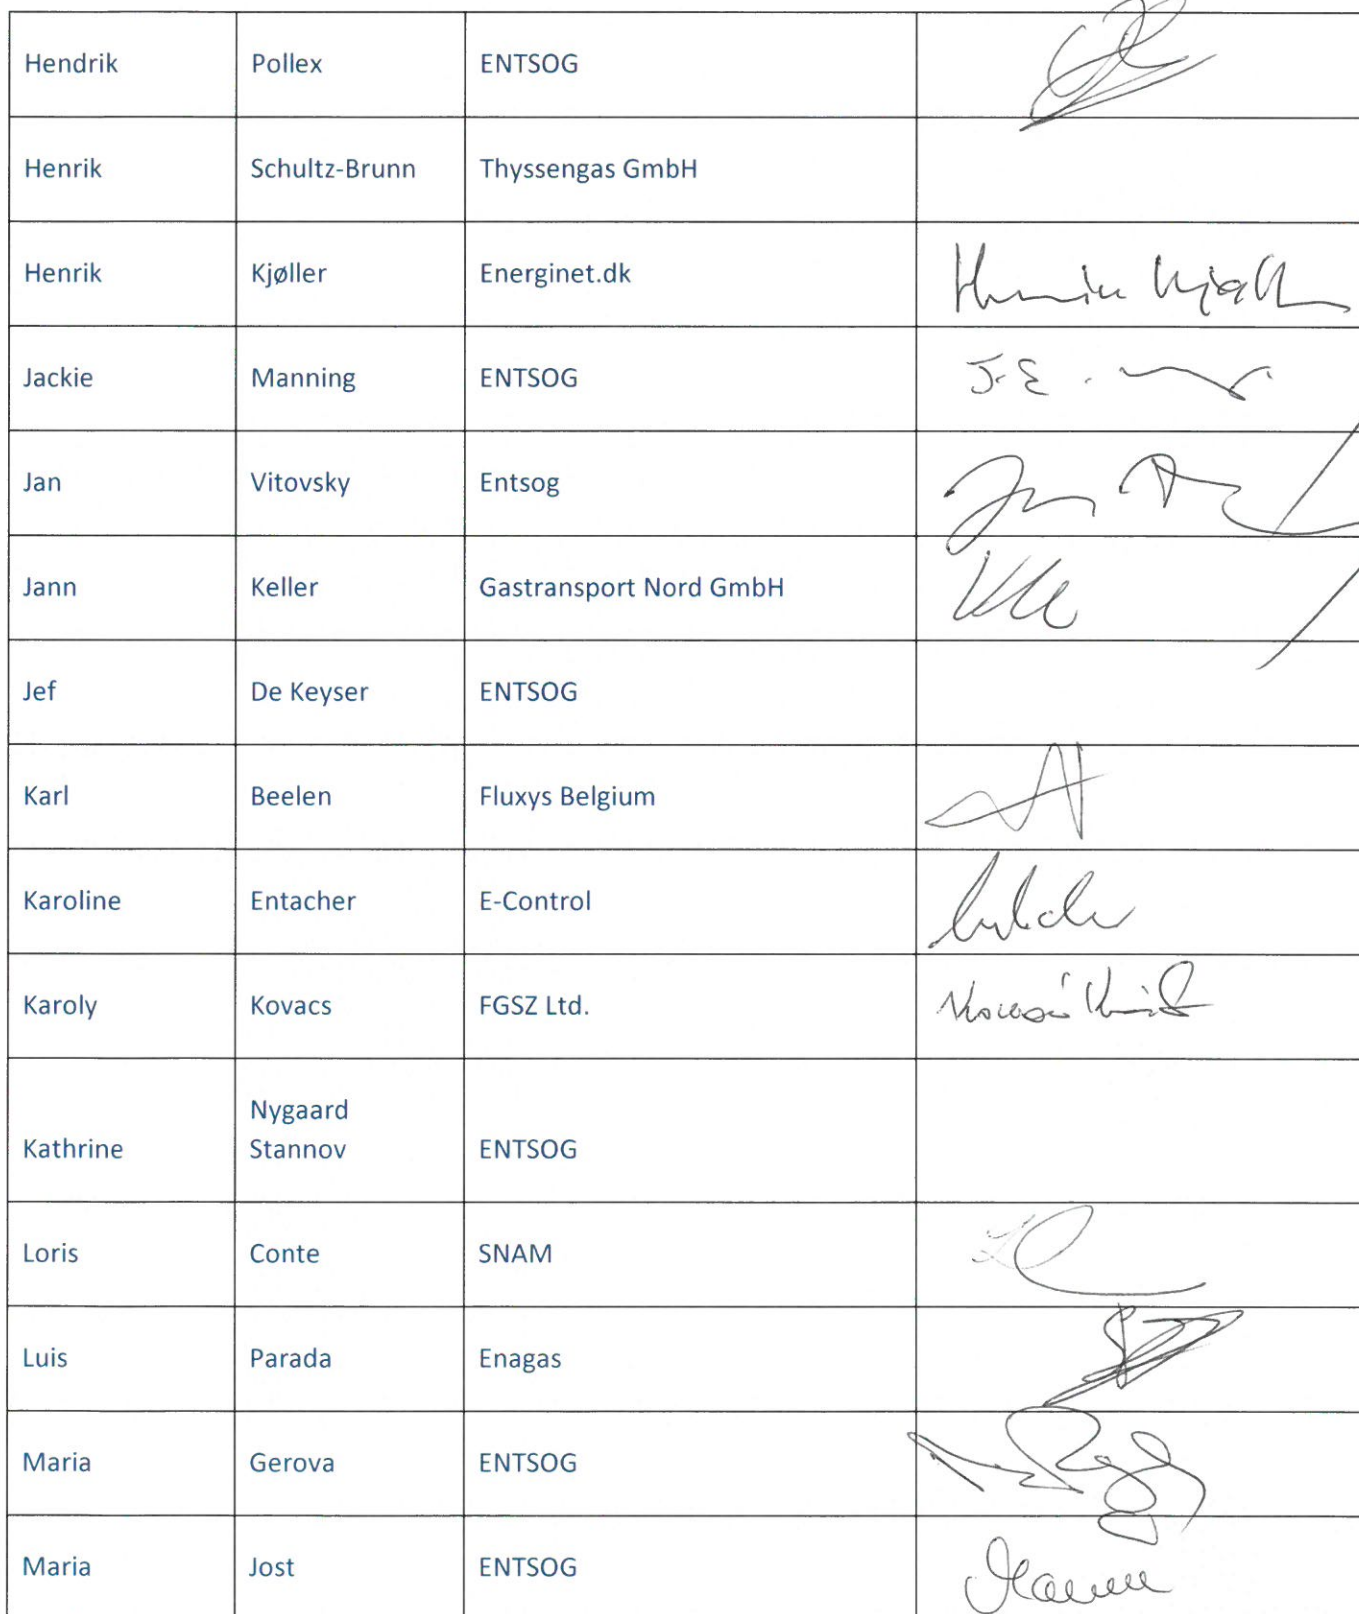 Hendrik Pollex ENTSOG
Henrik Schultz-Brunn Thyssengas GmbH
Henrik Kjøller Energinet.dk
Jackie Manning ENTSOG J.E.
Jan Vitovsky Entsog
Jann Keller Gastransport Nord GmbH
Jef De Keyser ENTSOG
Karl Beelen Fluxys Belgium
Karoline Entacher E-Control
Karoly Kovacs FGSZ Ltd.
Nygaard
Kathrine Stannov ENTSOG
Loris Conte SNAM
Luis Parada Enagas
Maria Gerova ENTSOG
Maria Jost ENTSOG